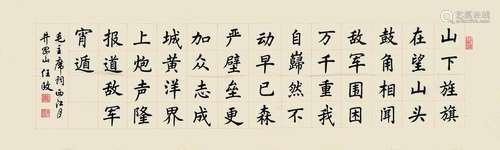 山下旌旗
在望山头
鼓角相闻
敌军围困
万千重我
自巋然不
动早已森
严壁垒更
加众志成
城黄洋界
上炮声隆
报道敌军
宵遁
毛主席词西江月
井冈山任政